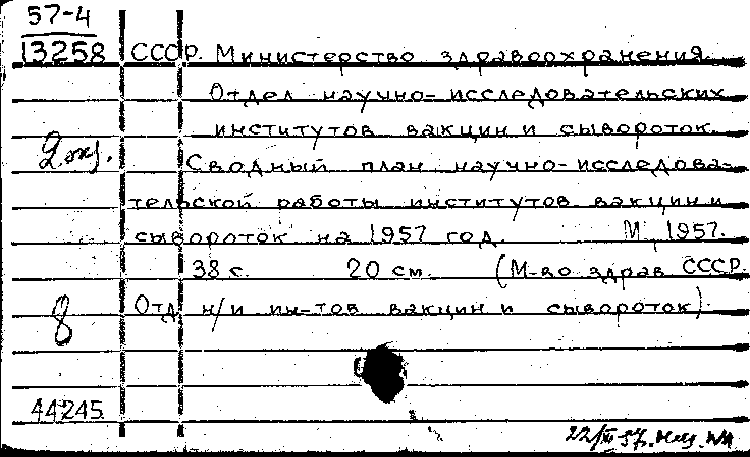 57-4
13258 СССР. Министерство здравоохранения.
Отдел научно-исследовательских
институтов вакцин и сывороток.
2 экз. Сводный план научно-исследова-
тельской работы институтов вакцин и
сывороток на 1957 год. М, 1957.
38 с. 20 см. (М-во здрав СССР.
8 Отд н/и ин-тов вакцин и сывороток)
44245
22/XI-57.